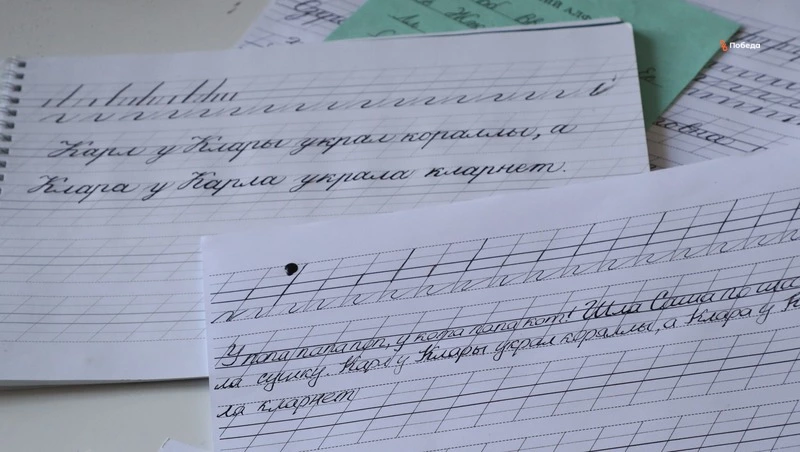 Победа
Карл у Клары украл кораллы, а
Клара у Карла украла кларнет.
У попа папа поп, у кота папа кот! Шла Саша по шос
ла сушку. Карл у Клары украл кораллы, а Клара у К
ла кларнет